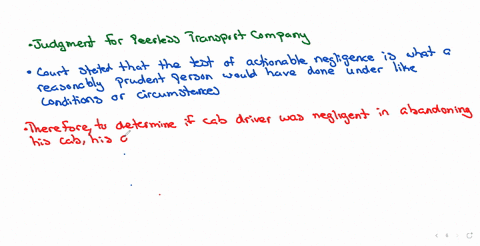 • Judgment for Peerless Transport Company
• Court stated that the test of actionable negligence is what a
reasonably prudent person would have done under like
conditions or circumstances
• Therefore, to determine if cab driver was negligent in abandoning
his cab, his